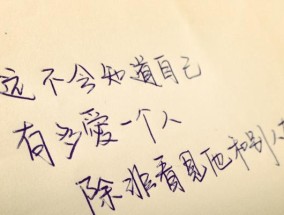 远不会知道自己
有多爱一个人
除非看见他和别人